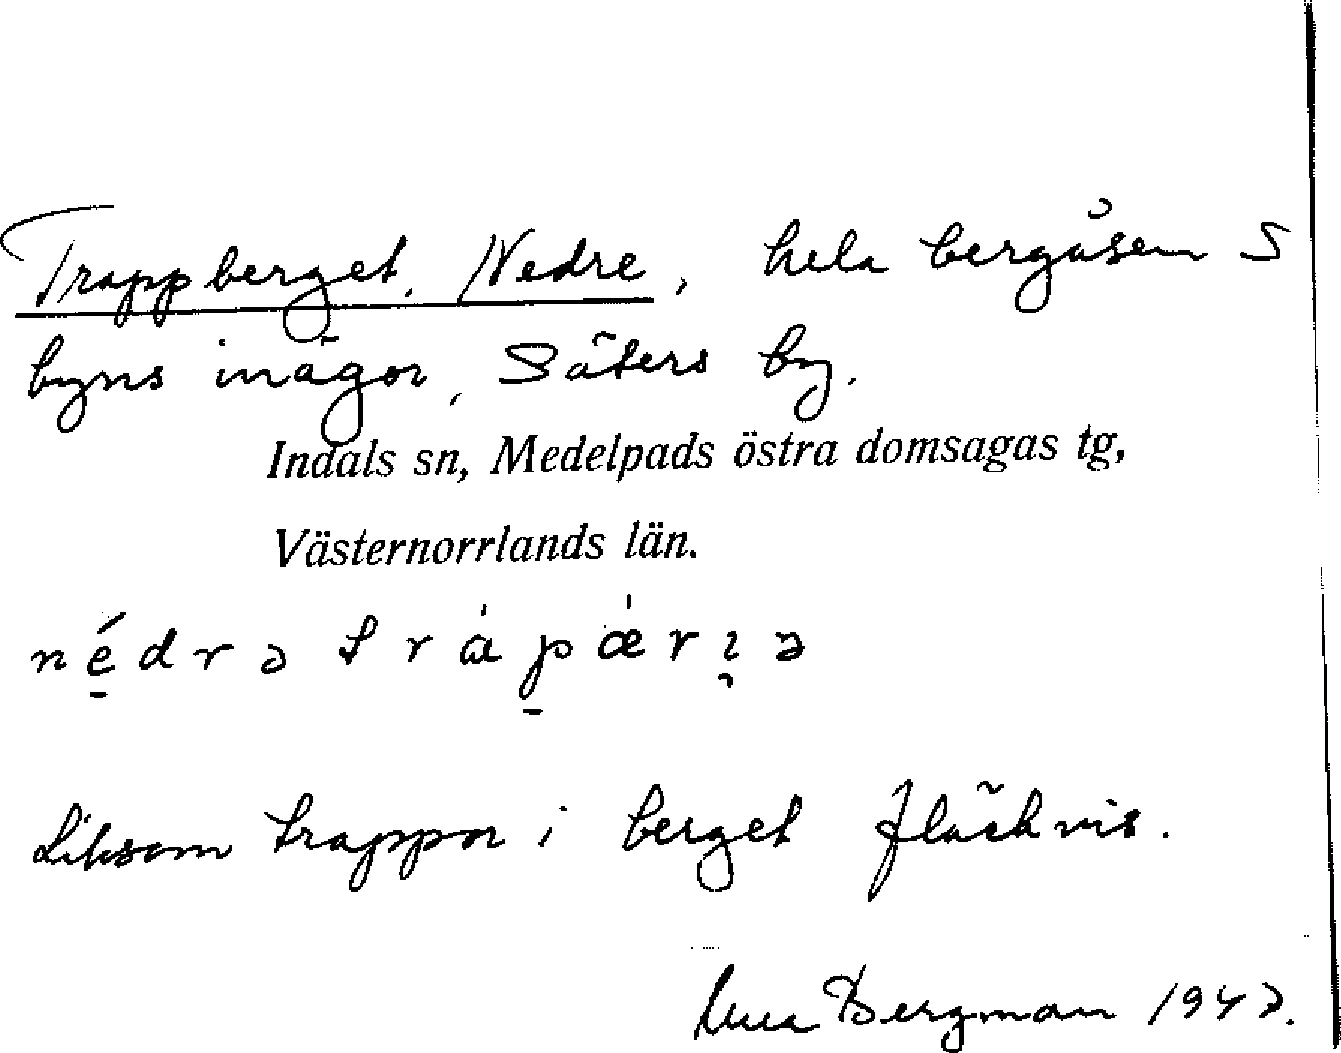 Trappberget, Nedre, hela bergåsen S
byns inägor, Säters by.
Indals sn, Medelpads östra domsagas tg,
Västernorrlands län.
nédrə trápǽrɩə
Liksom trappor i berget fläckvis.
Bergman 194